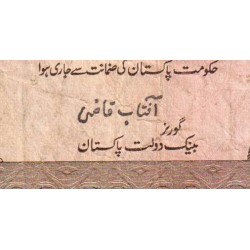 حکومت پاکستان کی ضمانت سے جاری ہوا
آفتاب قاضی
گورنر
بینک دولت پاکستان